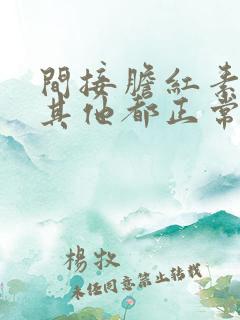 間接膽紅素
其他都正常
楊牧
未任同意禁止转载